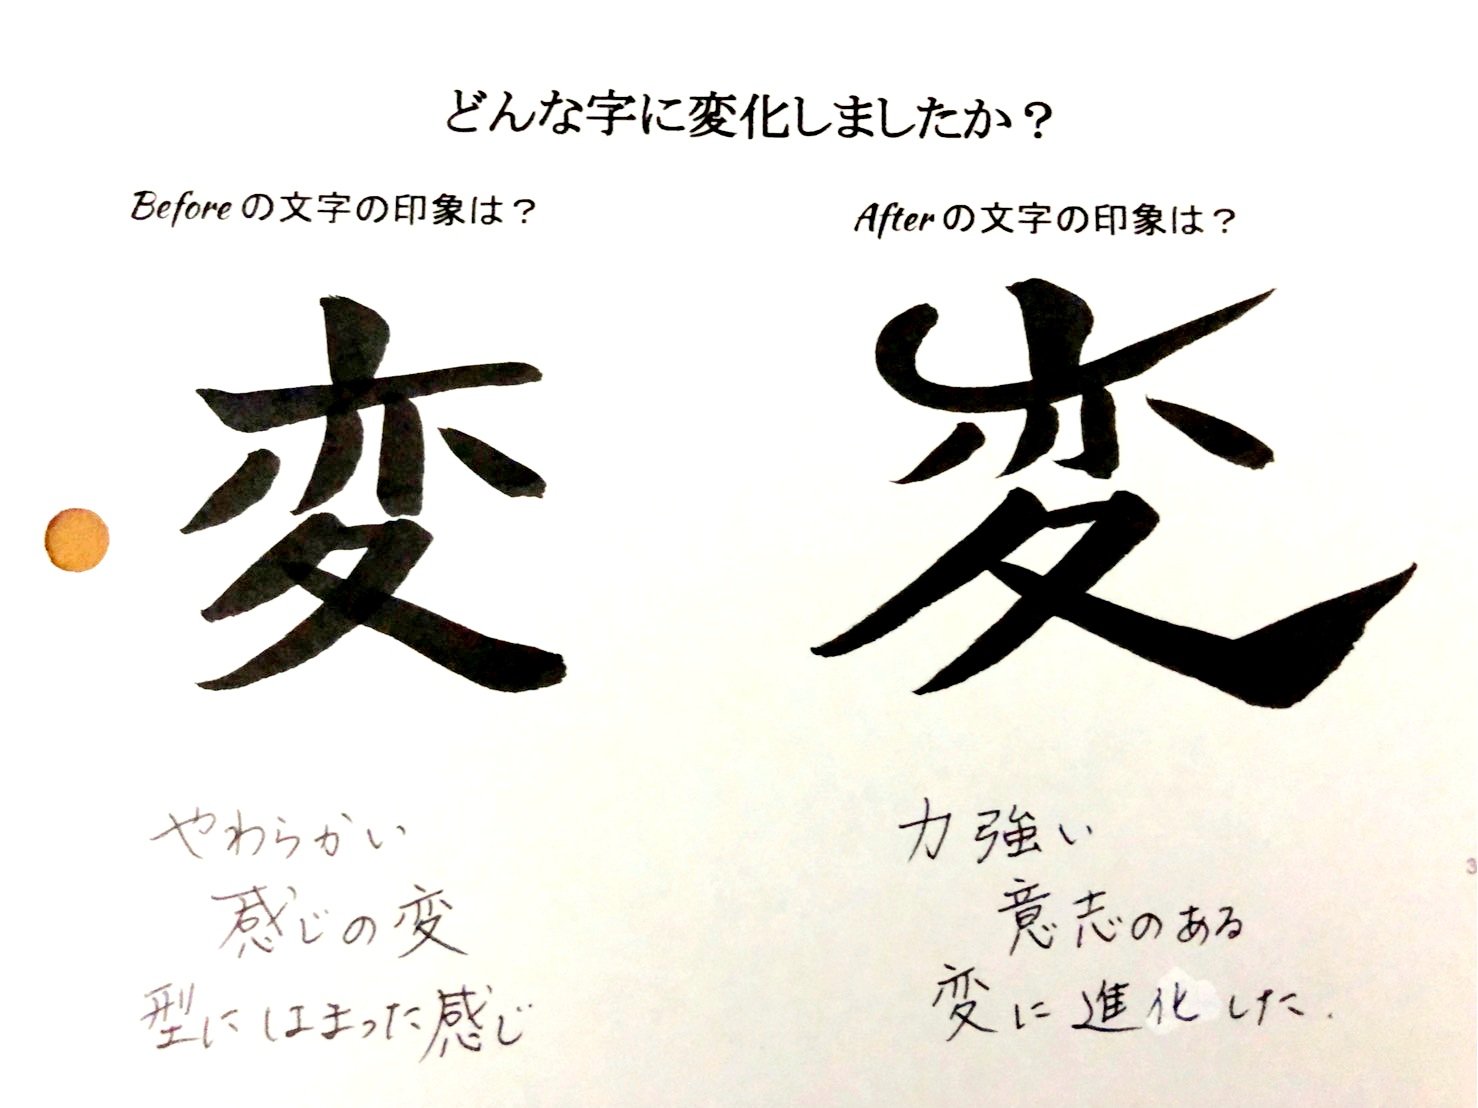 どんな字に変化しましたか？
Beforeの文字の印象は？
変
やわらかい
感じの変
型にはまった感じ
Afterの文字の印象は？
変
力強い
意志のある
変に進化した.
3